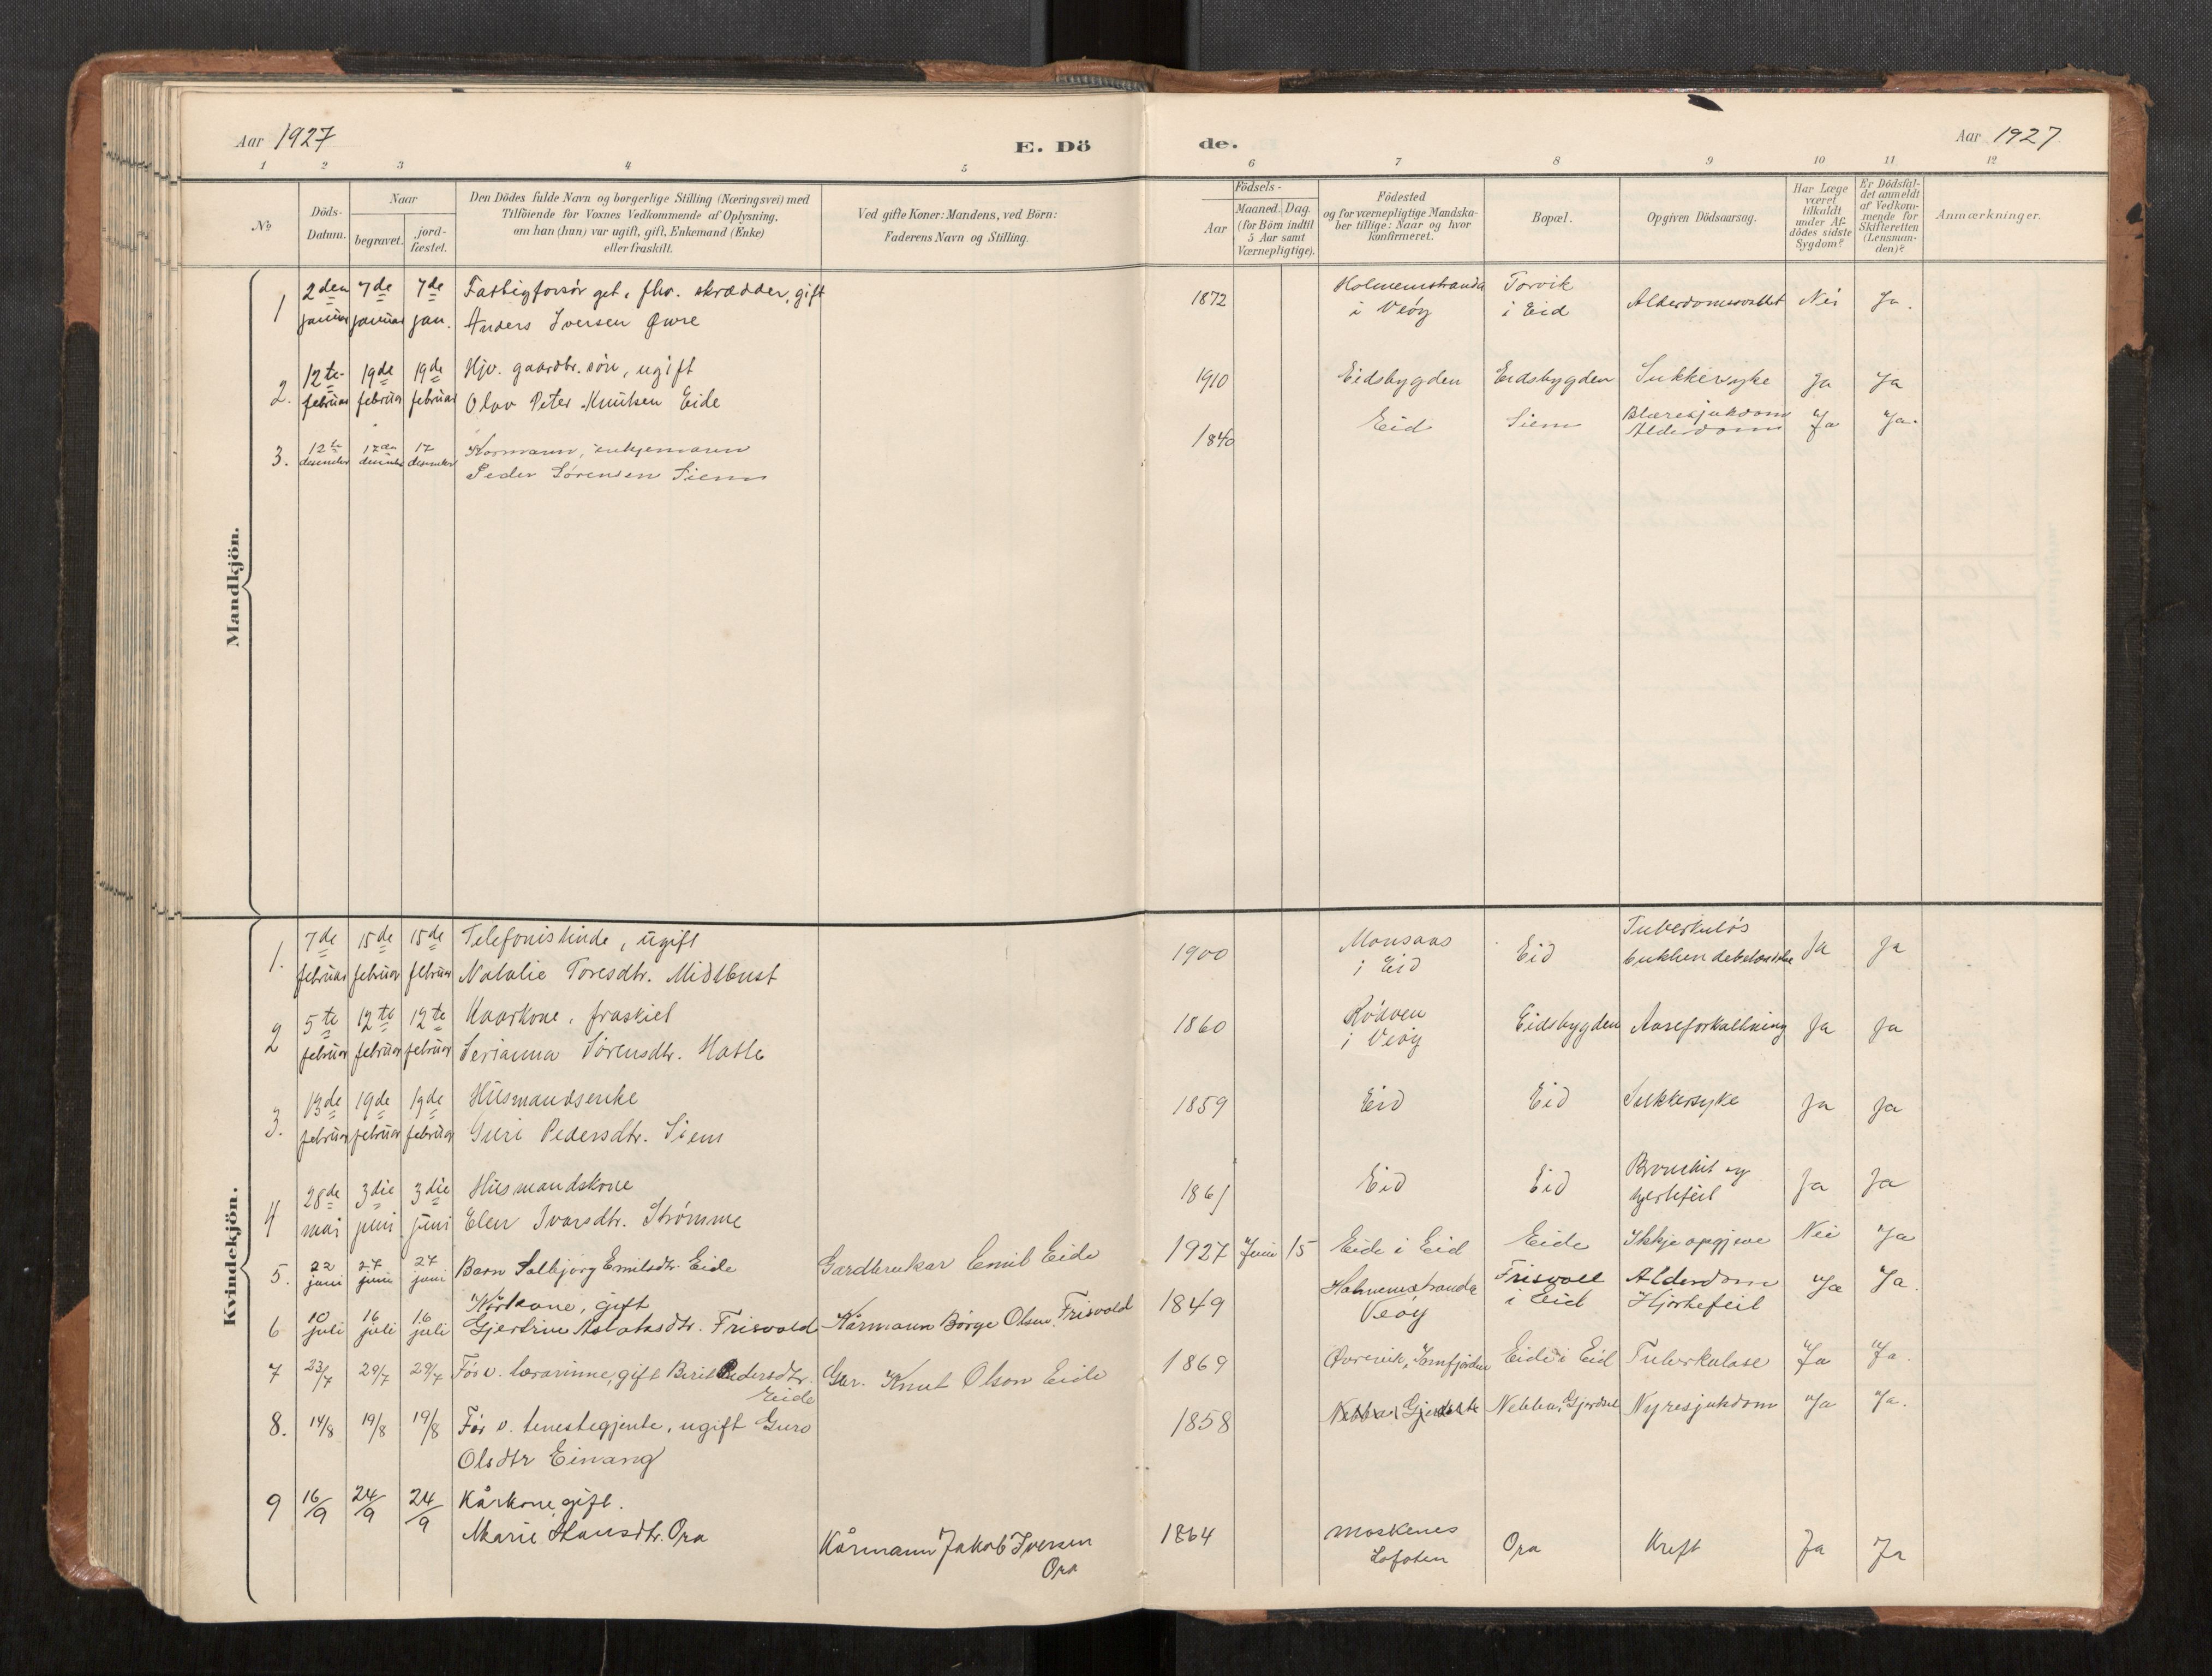 Aar 1927
E. Dö
de.
Aar 1927
1 2 3 4 5 6 7 8 9 10 11 12
No
Döds-
Datum.
Naar
begravet.
jord-
fæstet.
Den Dödes fulde Navn og borgerlige Stilling (Næringsvei) med
Tilföiende for Voxnes Vedkommende af Oplysning,
om han (hun) var ugift, gift, Enkemand (Enke)
eller fraskilt.
Ved gifte Koner: Mandens, ved Börn:
Faderens Navn og Stilling.
Födsels-
Aar
Maaned. Dag.
(for Börn indtil
5 Aar samt
Værnepligtige).
Födested
og for værnepligtige Mandska-
ber tillige: Naar og hvor
Konfirmeret.
Bopæl.
Opgiven Dödsaarsag.
Har Læge
været
tilkaldt
under Af-
dödes sidste
Sygdom?
Er Dödsfal-
det anmeldt
af Vedkom-
mende for
Skifteretten
(Lensman-
den)?
Anmærkninger.
Mandkjön.
1 2den 7de 7de Fattigforsørget, fhv. skrædder, gift 1872 Holmemstranda Torvik Nei Ja.
januar januar jan. Anders Iversen Øvre i Veøy i Eid
2. 12te 19de 19de Hjv. gaardbr. søn, ugift 1910 Eidsbygden Eidsbygden Sukkersyke Ja Ja
februar februar februar Olav Peter Knutsen Eide
3. 12te 17de 17 Kormann, enkjemann 1840 Eid Siem Blæresjukdom Ja Ja.
desember desember desember Peder Sørensen Siem Alderdom
Kvindekjön.
1. 7de 15de 15de Telefonistinde, ugift 1900 Monsaas Eid Tuberkuløs Ja Ja
februar februar februar Natalie Toresdtr. Midtbust i Eid
2 5te 12te 12te Kaarkone, fraskilt 1860 Rødven Eidsbygden Aareforkalkning Ja Ja
februar februar februar Serianna Sørensdtr. Hatle i Veøy
3. 13de 19de 19de Husmandsenke 1859 Eid Eid Sukkersyke Ja Ja
februar februar februar Guri Pedersdtr. Siem
4 28de 3die 3die Husmandskone 1861 Eid Eid Bronchit og Ja Ja
mai juni juni Elen Ivarsdtr. Strømme hjertefeil
5. 22 27 27 Barn Solbjørg Emilsdtr. Eide Gardbrukar Emil Eide 1927 Juni 15 Eide i Eid Eide Ikkje opgjeve Nei Ja
juni juni juni
6 10 16 16 Kårkone, gift 1849 Holmemstranda Frisvoll Alderdom Ja Ja.
juli juli juli Gjertrine Aslaksdtr. Frisvold Kårmann Børge Olsen Frisvold Veøy i Eid Hjertefeil
7 23/7 29/7 29/7 Før v. lærarinne, gift Berit Pedersdtr. Gbr. Knut Olson Eide 1869 Eide i Eid Tuberkulose Ja Ja.
Eide
8. 14/8 19/8 19/8 Før v. tenestegjente, ugift Guro 1858 Nebba, Gjerdset Nyresjukdom Ja Ja.
Olsdtr Einang
9 16/9 24/9 24/9 Kårkone, gift. 1864 Moskenes Ora Kreft Ja Ja
Marie Hansdtr. Ora Kårmann Jakob Iversen Lofoten
Ora